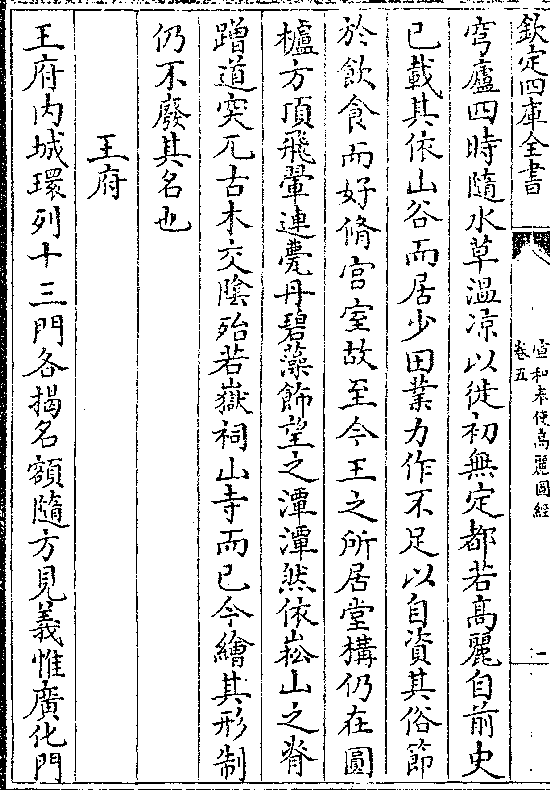 欽定四庫全書
宣和奉使高麗圖經
卷五
一
穹廬四時隨水草溫凉以徙初無定都若高麗自前史
已載其依山谷而居少田業力作不足以自資其俗節
於飲食而好脩宮室故至今王之所居堂構仍在圓
櫨方頂飛翬連甍丹碧藻飾望之潭潭然依崧山之脊
蹭道突兀古木交陰殆若嶽祠山寺而已今繪其形制
仍不廢其名也
王府
王府内城環列十三門各揭名額隨方見義惟廣化門